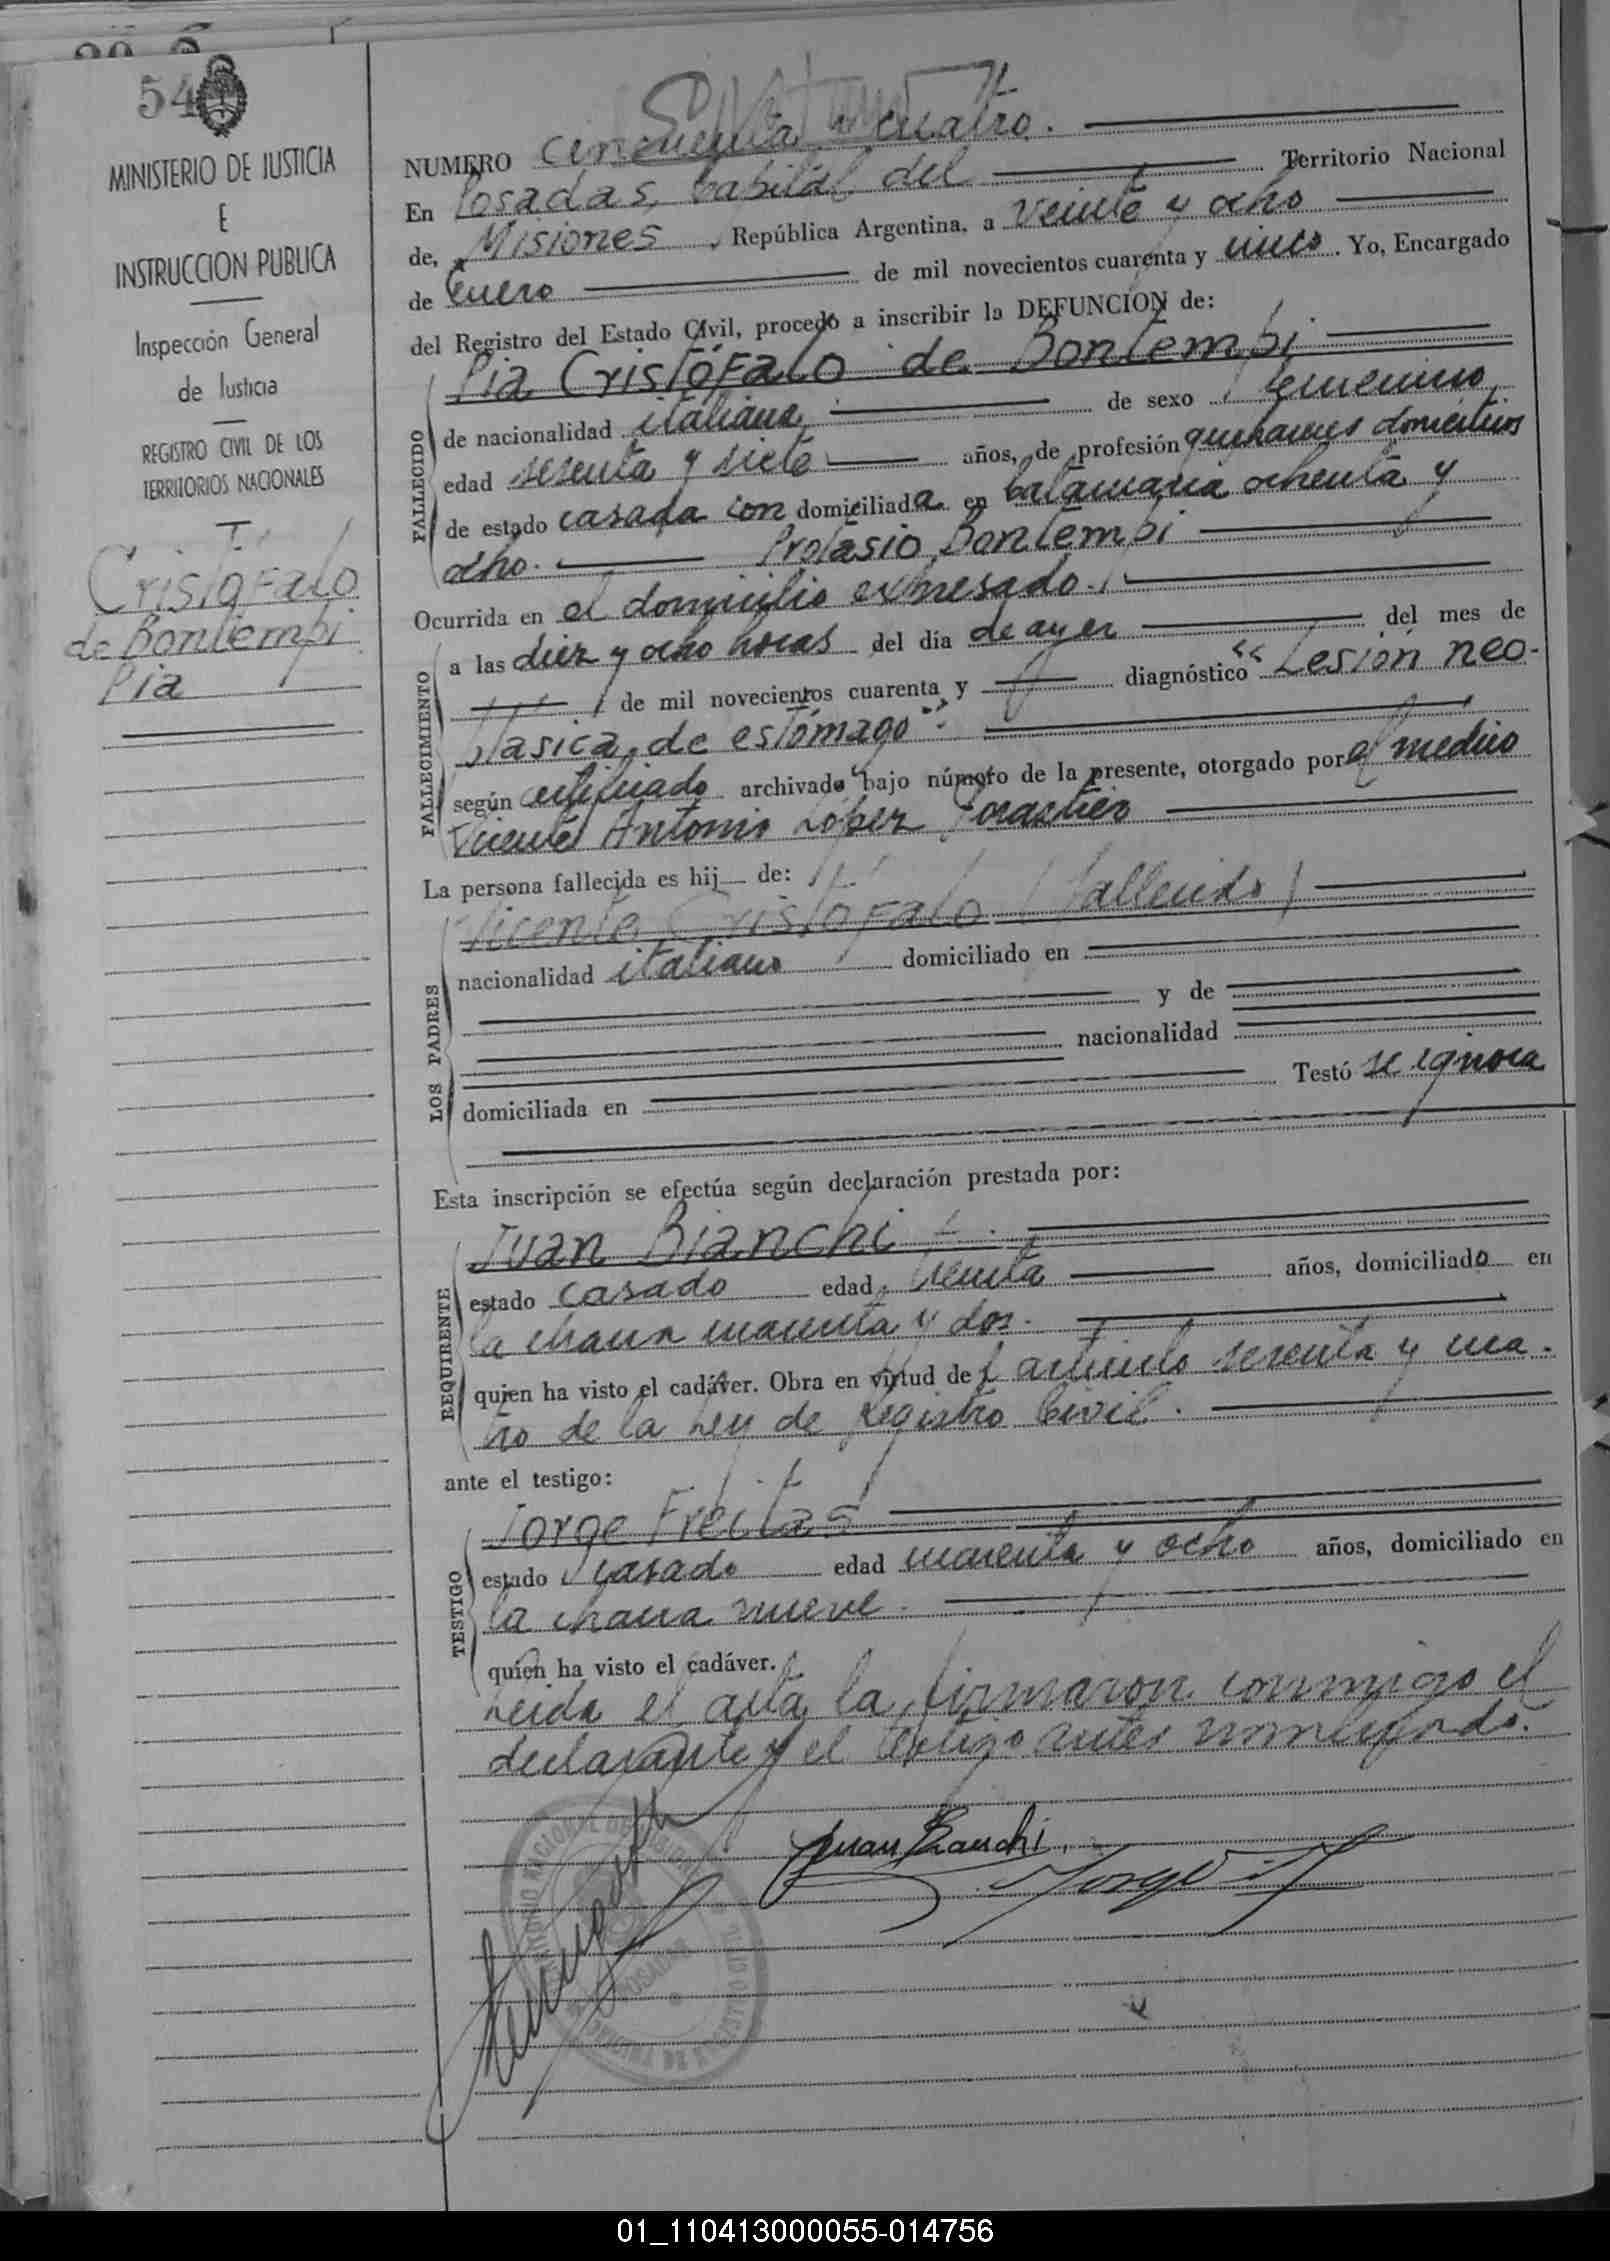 54
MINISTERIO DE JUSTICIA
E
INSTRUCCION PUBLICA
Inspección General
de Justicia
REGISTRO CIVIL DE LOS
TERRITORIOS NACIONALES
Cristófalo
de Bontempi
Pia
NUMERO cincuenta y cuatro.
En Posadas, Capital del Territorio Nacional
de, Misiones, República Argentina, a veinte y ocho
de Enero de mil novecientos cuarenta y cinco. Yo, Encargado
del Registro del Estado Civil, procedo a inscribir la DEFUNCION de:
FALLECIDO
Pia Cristófalo de Bontempi
de nacionalidad italiana de sexo femenino
edad sesenta y siete años, de profesión quehaceres domésticos
de estado casada con domiciliada en Catamarca ochenta y
ocho. Protasio Bontempi
Ocurrida en el domicilio expresado.
FALLECIMIENTO
a las diez y ocho horas del día de ayer del mes de
de mil novecientos cuarenta y diagnóstico "Lesión neo-
plasica de estómago".
según certificado archivado bajo número de la presente, otorgado por el médico
Vicente Antonio López Forastier
La persona fallecida es hij de:
LOS PADRES
Vicente Cristófalo (fallecido)
nacionalidad italiano domiciliado en
y de
nacionalidad
domiciliada en Testó se ignora
Esta inscripción se efectúa según declaración prestada por:
REQUIRENTE
Juan Bianchi
estado casado edad treinta años, domiciliado en
la chacra cuarenta y dos.
quien ha visto el cadáver. Obra en virtud del artículo sesenta y cua-
tro de la Ley de Registro Civil.
ante el testigo:
TESTIGO
Jorge Freitas
estado casado edad cuarenta y ocho años, domiciliado en
la chacra nueve.
quien ha visto el cadáver.
Leida el acta la firmaron conmigo el
declarante y el testigo antes nombrado.
Juan Bianchi
Jorge
POSADAS
01_110413000055-014756